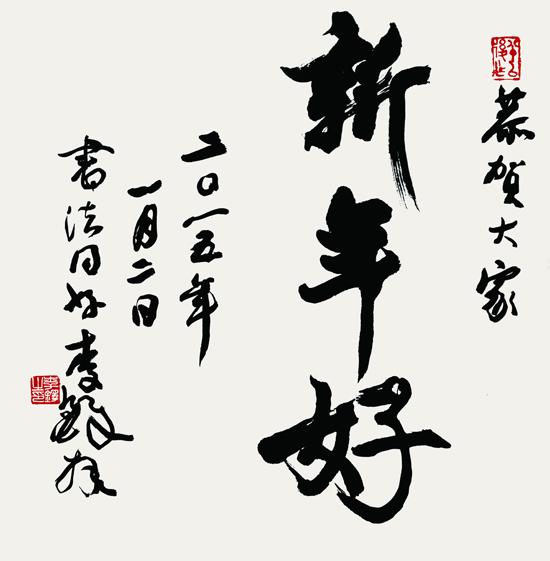 恭贺大家
新年好
二〇一五年
一月二日
書法同好李鐸